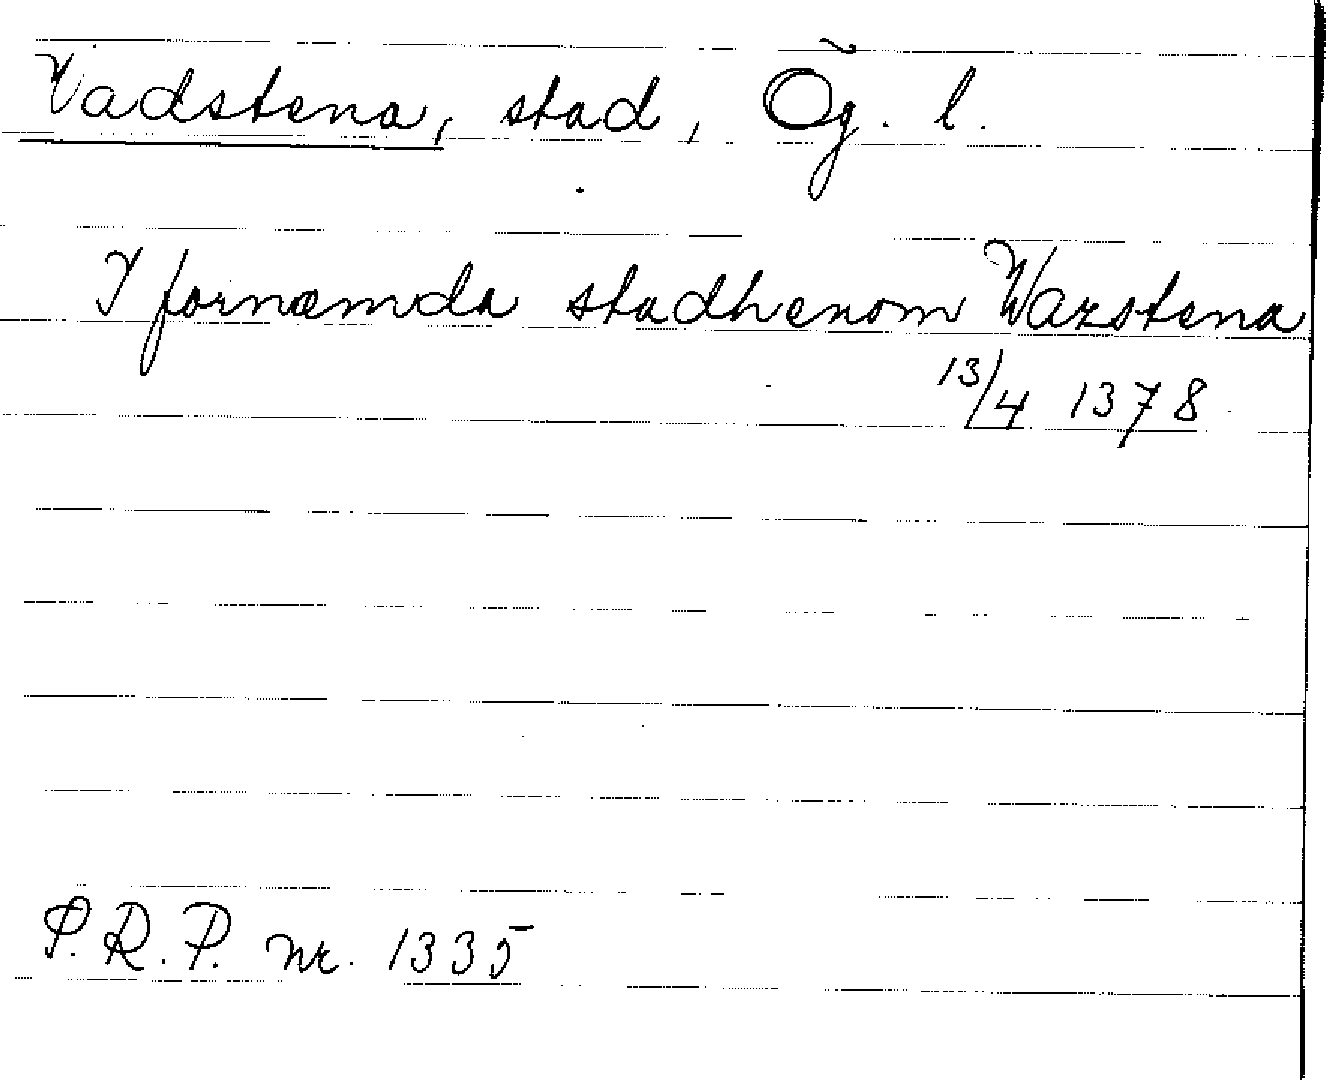 Vadstena, stad, Ög. l.
I fornæmda stadhenom Wazstena
13/4 1378
P.R.P. nr. 1335